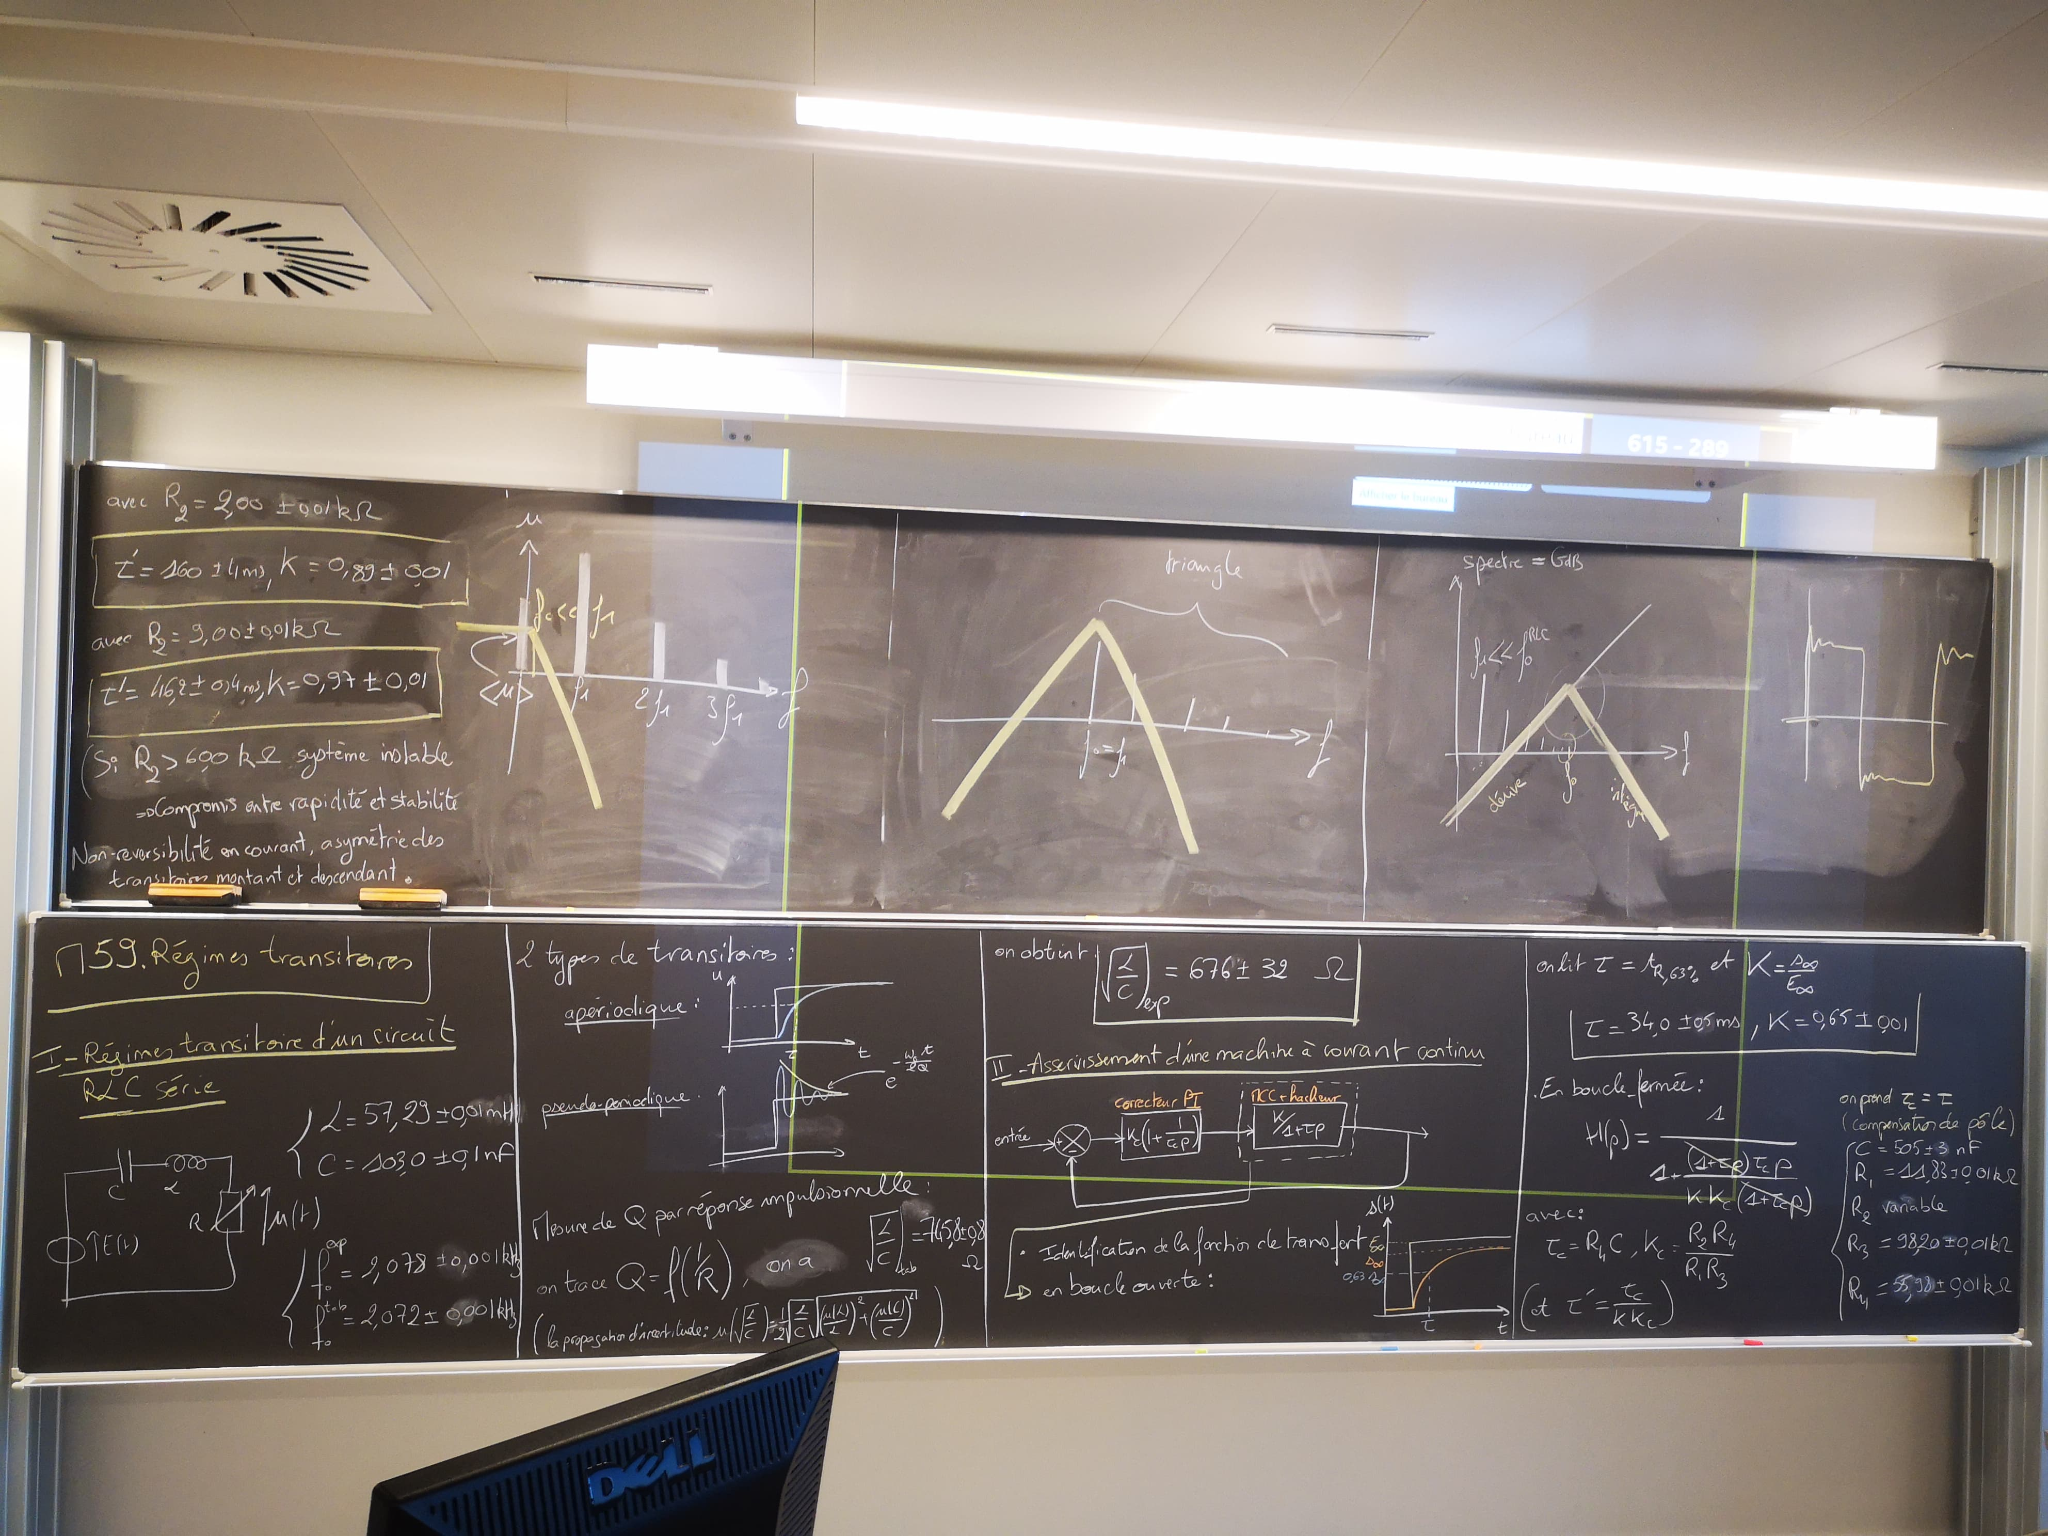 avec R₂ = 2,00 ± 0,01 kΩ
τ' = 160 ± 4 ms, K = 0,89 ± 0,01
avec R₂ = 9,00 ± 0,01 kΩ
τ' = 46,2 ± 0,4 ms, K = 0,97 ± 0,01
(Si R₂ > 600 kΩ système instable
⇒ Compromis entre rapidité et stabilité
Non-reversibilité en courant, asymétrie des
transitoires montant et descendant.
u
f₀ << f₁
<u> f₁ 2f₁ 3f₁ f
triangle
f₀ = f₁ f
spectre = GdB
f₁ << f₀ RLC
dérive f₀ intègre f
615 - 289
Π59. Régimes transitoires
I - Régimes transitoire d'un circuit
RLC série
L = 57,29 ± 0,01 mH
C = 103,0 ± 0,1 nF
C L
R u(t)
E(t)
f₀ exp = 2,078 ± 0,001 kHz
f₀ tab = 2,072 ± 0,001 kHz
2 types de transitoires :
apériodique :
u
τ t
pseudo-periodique
e^(-ω₀t/2Q)
Mesure de Q par réponse impulsionnelle :
on trace Q = f(1/R), on a √(L/C) tab = 745,8 ± 0,8 Ω
(la propagation d'incertitude : u(√(L/C)) = 1/2 √(L/C) √((u(L)/L)² + (u(C)/C)²)
on obtient √(L/C))exp = 676 ± 32 Ω
II - Asservissement d'une machine à courant continu
correcteur PI
MCC + hacheur
entrée Kc(1 + 1/τcp) K/1+τp
• Identification de la fonction de transfert
en boucle ouverte :
s(t)
E∞
s∞
τ t
on lit τ = tR,63% et K = s∞/E∞
τ = 34,0 ± 0,5 ms, K = 0,65 ± 0,01
. En boucle fermée :
H(p) = 1 / (1 + (1+τp)τcp / KKc(1+τcp))
avec :
τc = R₄C, Kc = R₂R₄/R₁R₃
(et τ' = τc/KKc)
on prend τc = τ
(compensation de pôle)
C = 505 ± 3 nF
R₁ = 11,83 ± 0,01 kΩ
R₂ variable
R₃ = 98,20 ± 0,01 kΩ
R₄ = 55,98 ± 0,01 kΩ
DELL